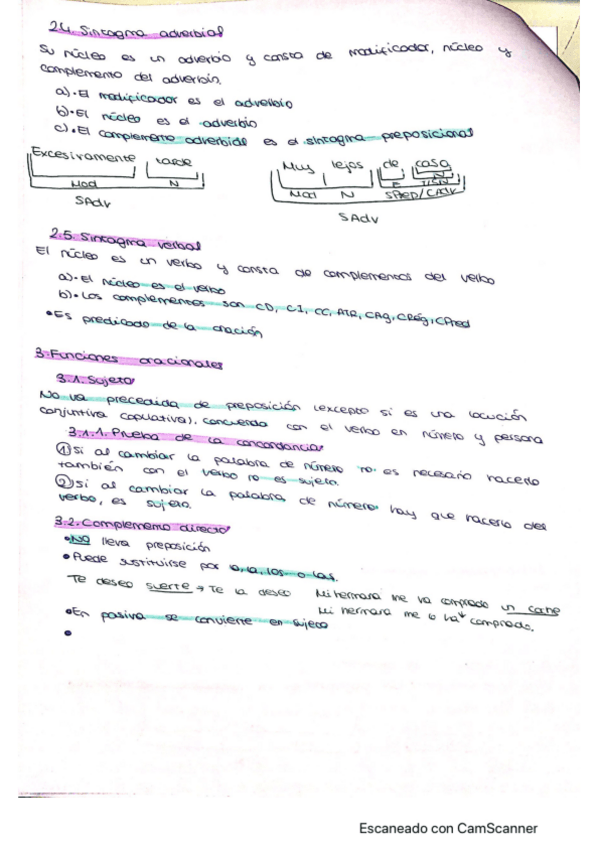 2.4. Sintagma adverbial
Su núcleo es un adverbio y consta de modificador, núcleo y
complemento del adverbio.
a)· El modificador es el adverbio
b)· El núcleo es el adverbio
c)· El complemento adverbide es el sintagma preposicional
Excesivamente tarde
Mod N
SAdv
Muy lejos de casa
N
E T/SN
Mod N SPrep/CAdv
SAdv
2.5. Sintagma verbal
El núcleo es un verbo y consta de complementos del verbo
a)· El núcleo es el verbo
b)· Los complementos son CD, CI, CC, ATR, CAg, CRég, CPred
• Es predicado de la oración
3. Funciones oracionales
3.1. Sujeto
No va precedida de preposición (excepto si es una locución
conjuntiva copulativa), concuerda con el verbo en número y persona
3.1.1. Prueba de la concordancia
① Si al cambiar la palabra de número no es necesario hacerlo
también con el verbo no es sujeto.
② Si al cambiar la palabra de número hay que hacerlo del
verbo, es sujeto.
3.2. Complemento directo
• No lleva preposición
• Puede sustituirse por lo, la, los o las.
Te deseo suerte → Te la deseo
Mi hermana me ha comprado un coche
Mi hermana me lo ha comprado.
• En pasiva se convierte en sujeto
•
Escaneado con CamScanner